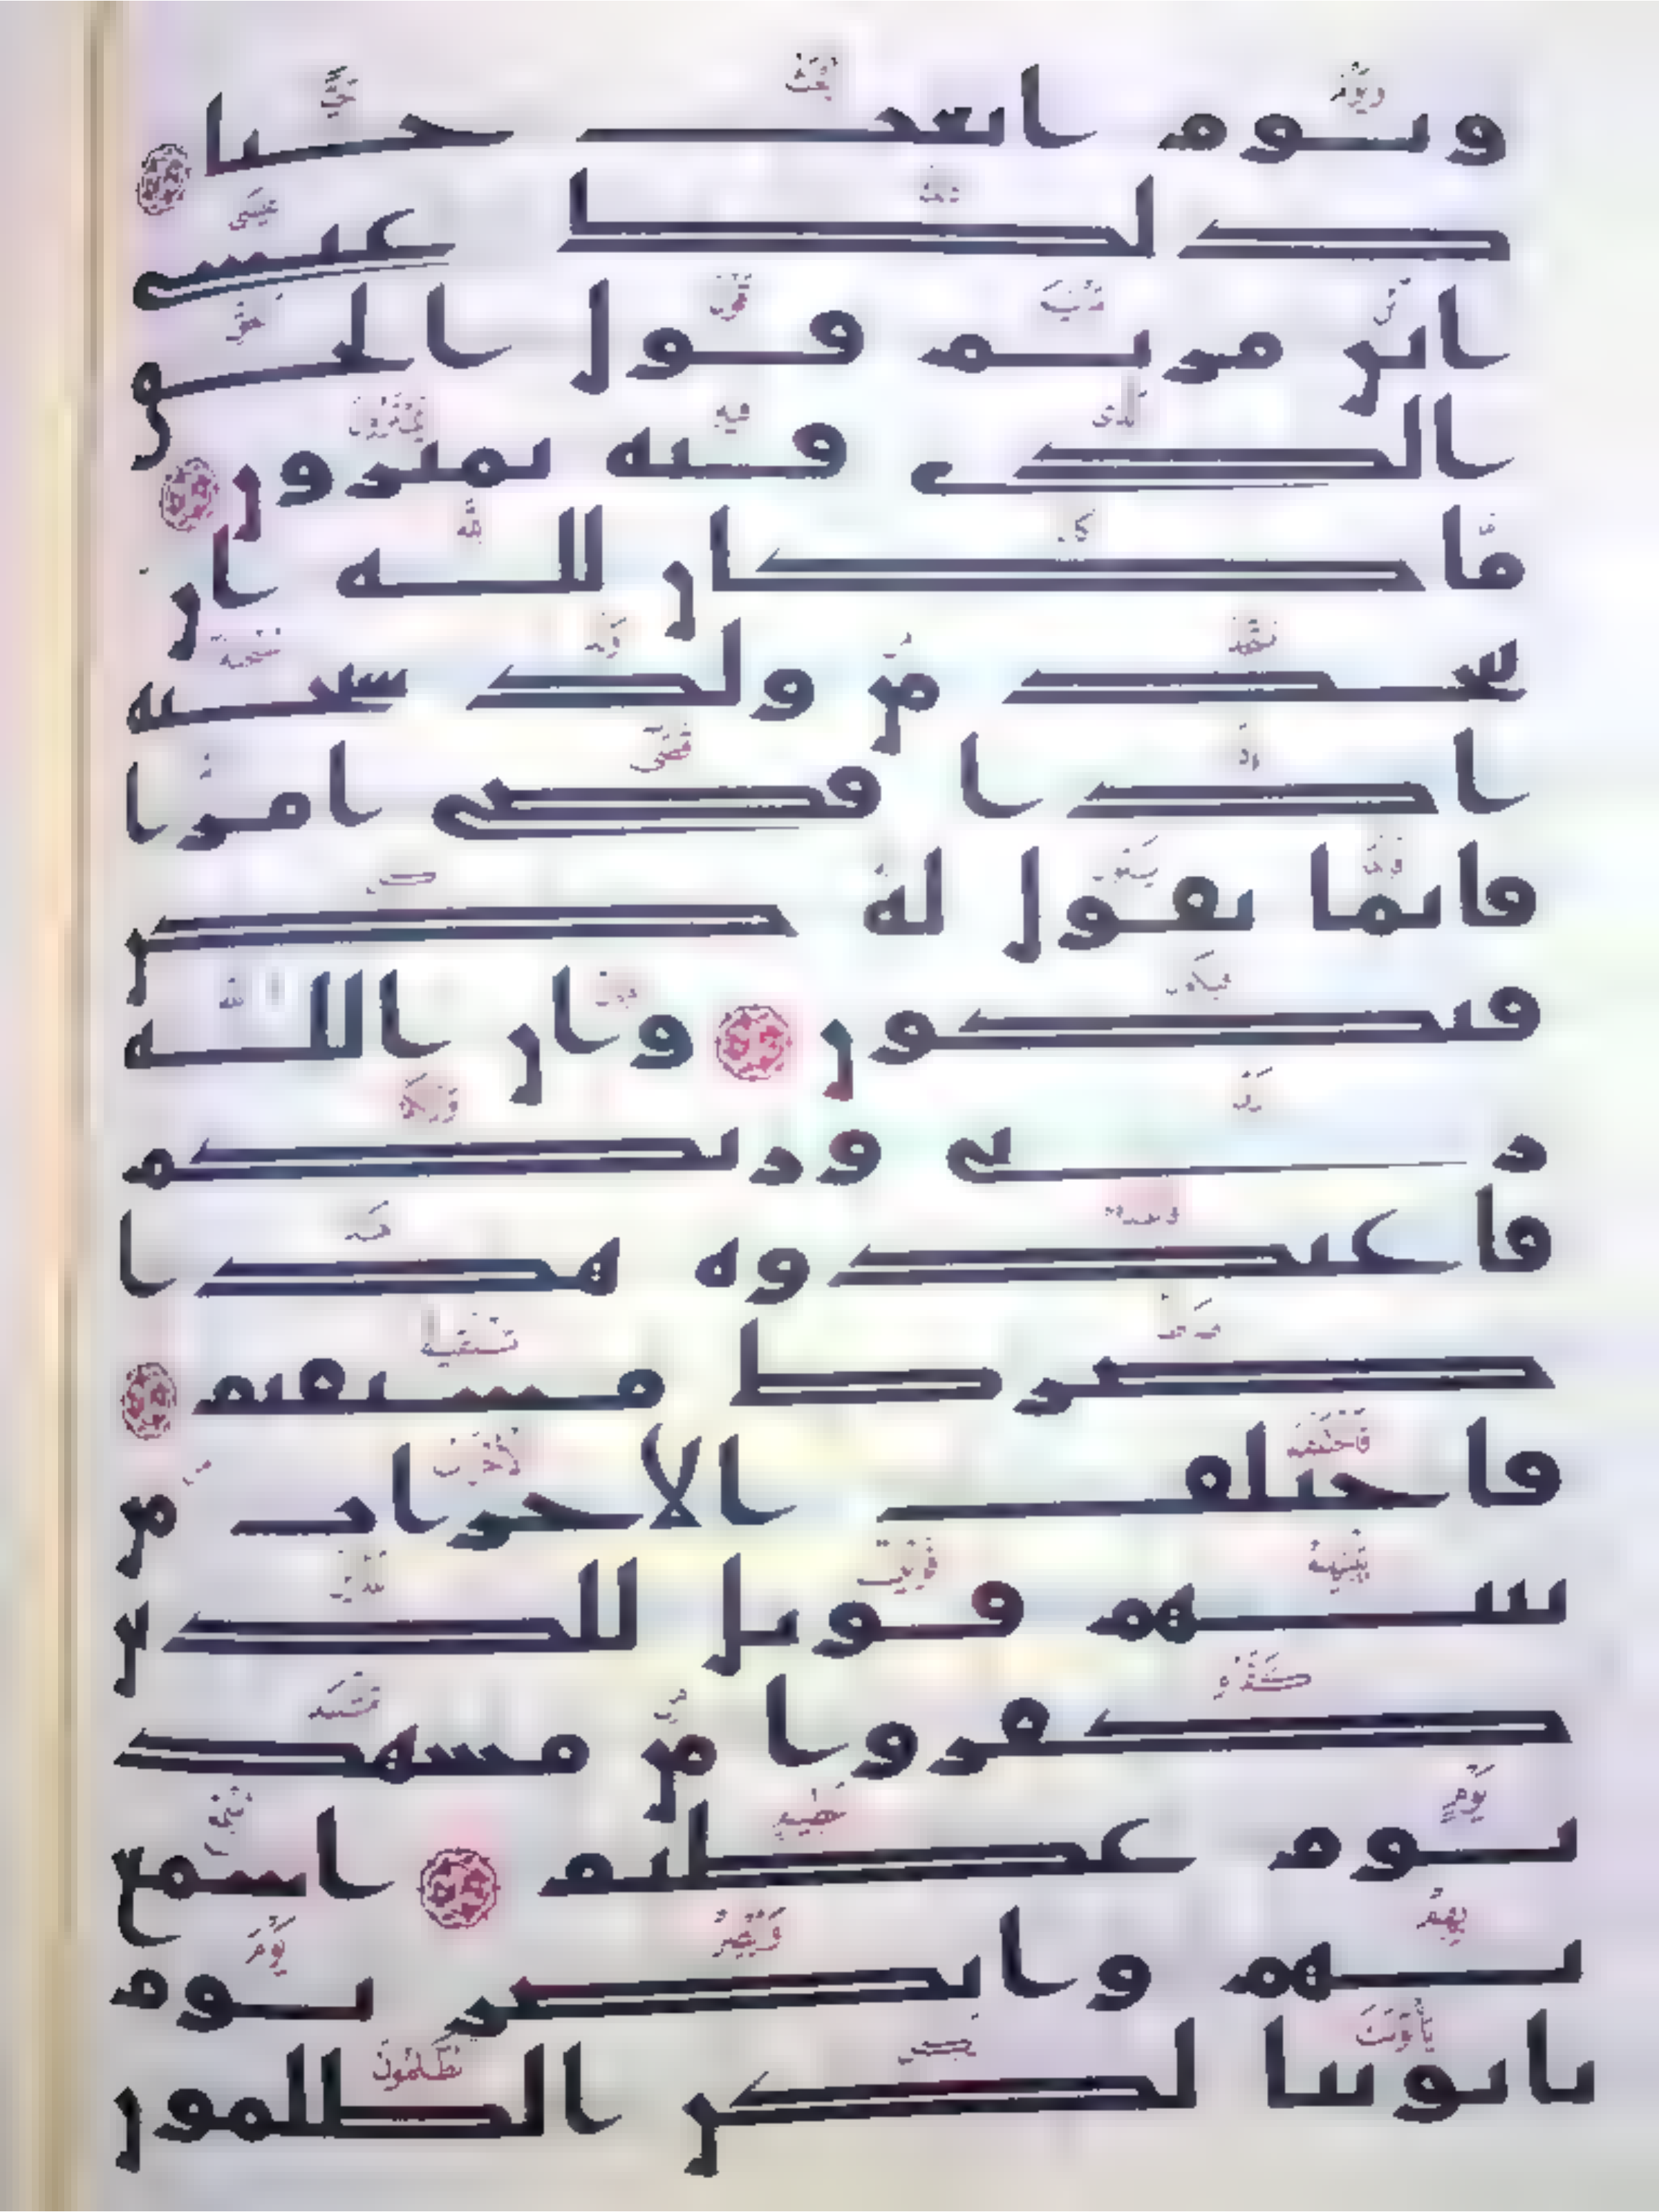 ويوم ابعث حيا
ذلك عيسى
ابن مريم قول الحق
الذى فيه يمترون
ما كان لله ان
يتخذ من ولد سبحنه
اذا قضى امرا
فانما يقول له كن
فيكون وان الله
ربى وربكم
فاعبدوه هذا
صرط مستقيم
فاختلف الاحزاب من
بينهم فويل للذين
كفروا من مشهد
يوم عظيم اسمع
بهم وابصر يوم
ياتوننا لكن الظلمون